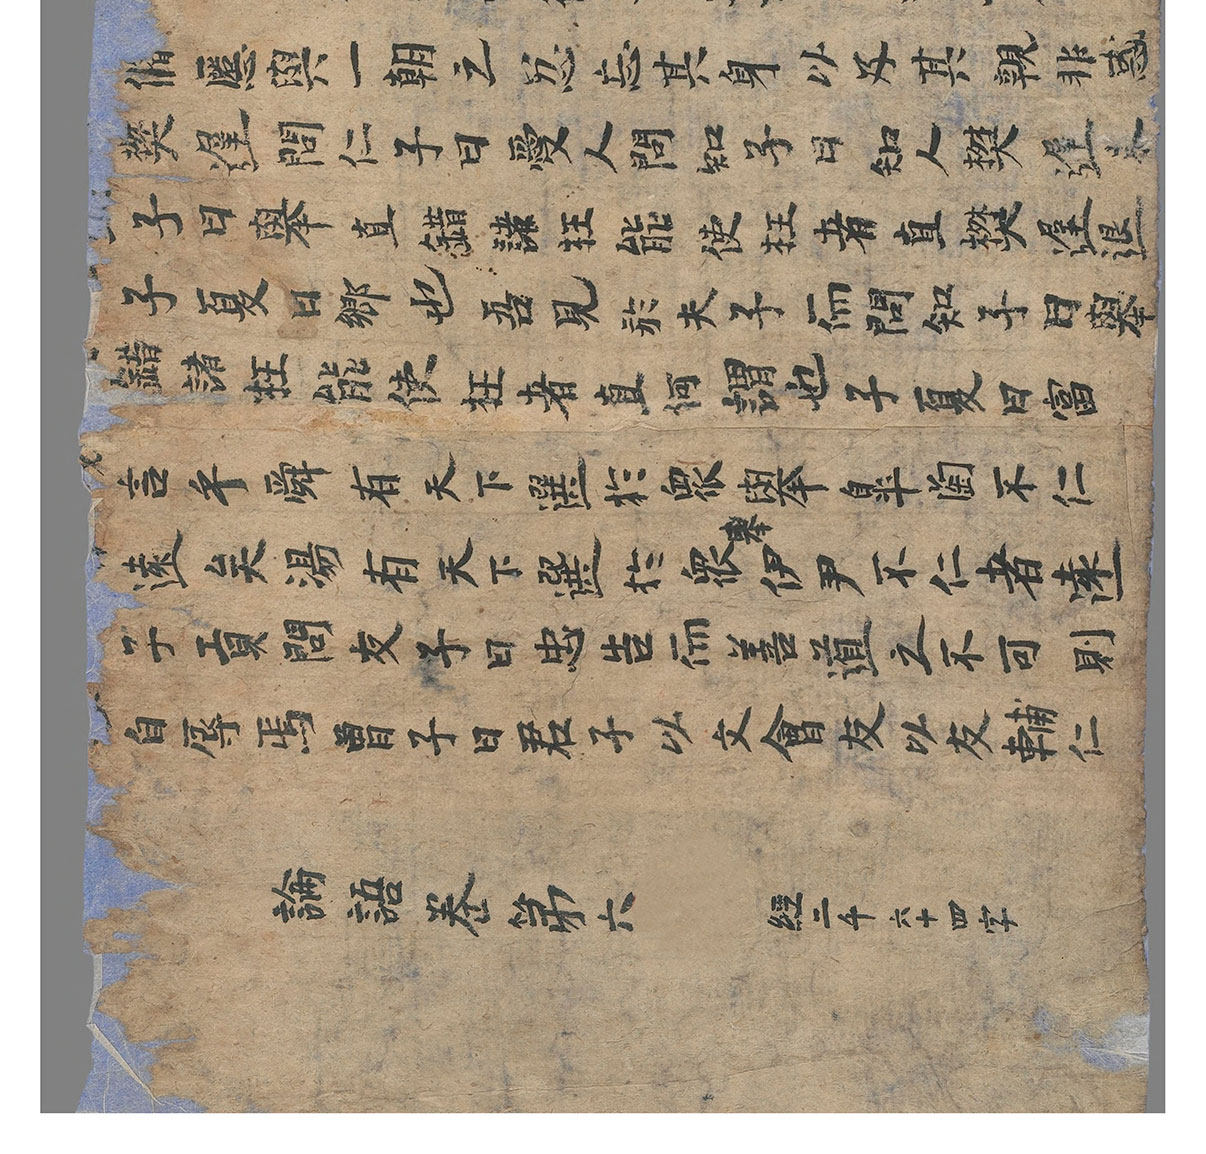 脩慝與一朝之忿忘其身以及其親非惑
樊遲問仁子曰愛人問知子曰知人樊遲未
子曰舉直錯諸枉能使枉者直樊遲退
子夏曰鄉也吾見於夫子而問知子曰舉
錯諸枉能使枉者直何謂也子夏曰富
言乎舜有天下選於眾舉皋陶不仁
遠矣湯有天下選於眾舉伊尹不仁者遠
子貢問友子曰忠告而善道之不可則
自辱焉曾子曰君子以文會友以友輔仁
論語卷第六 經二千六十四字